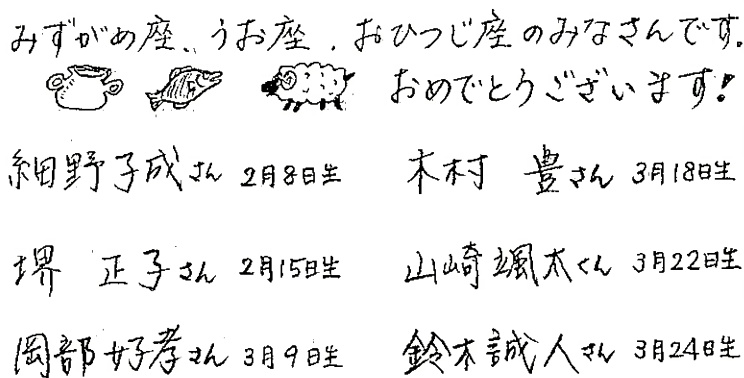 みずがめ座、うお座、おひつじ座のみなさんです。
おめでとうございます!
細野子成さん 2月8日生 木村 豊さん 3月18日生
堺 正子さん 2月15日生 山崎颯太くん 3月22日生
岡部好孝さん 3月9日生 鈴木誠人さん 3月24日生